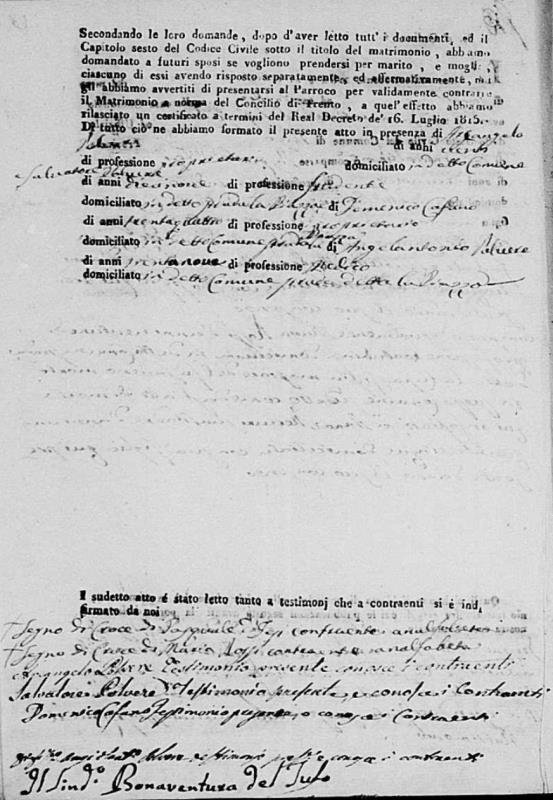 Secondando le loro domande, dopo d'aver letto tutt' i documenti, ed il
Capitolo sesto del Codice Civile sotto il titolo del matrimonio, abbiamo
domandato a futuri sposi se vogliono prendersi per marito, e moglie,
ciascuno di essi avendo risposto separatamente ed affermativamente, noi
gli abbiamo avvertiti di presentarsi al Parroco per validamente contrarre
il Matrimonio a norma del Concilio di Trento, a quel'effetto abbiamo
rilasciato un certificato a termini del Real Decreto de' 16. Luglio 1815.
Di tutto ciò ne abbiamo formato il presente atto in presenza di Arcangelo
di anni
di professione proprietario domiciliato in detto Comune
e Salvatore Polvere
di anni di professione
domiciliato in detto di Domenico Cofano
di anni trentaquattro di professione proprietario
domiciliato in detto Comune di Angelantonio Polvere
di anni trentanove di professione Medico
domiciliato in detto Comune
I sudetto atto é stato letto tanto a testimonj che a contraenti si é indi
firmato da noi
Segno di Croce di Pasquale contraente analfabeta
Segno di Croce di Maria contraente analfabeta
Arcangelo Polvere Testimonio presente conosce i contraenti
Salvatore Polvere Testimonio presente, e conosce i Contraenti
Domenico Cofano Testimonio presente, e conosce i Contraenti
Polvere testimonio e conosce i contraenti
Il Sind.o Bonaventura del